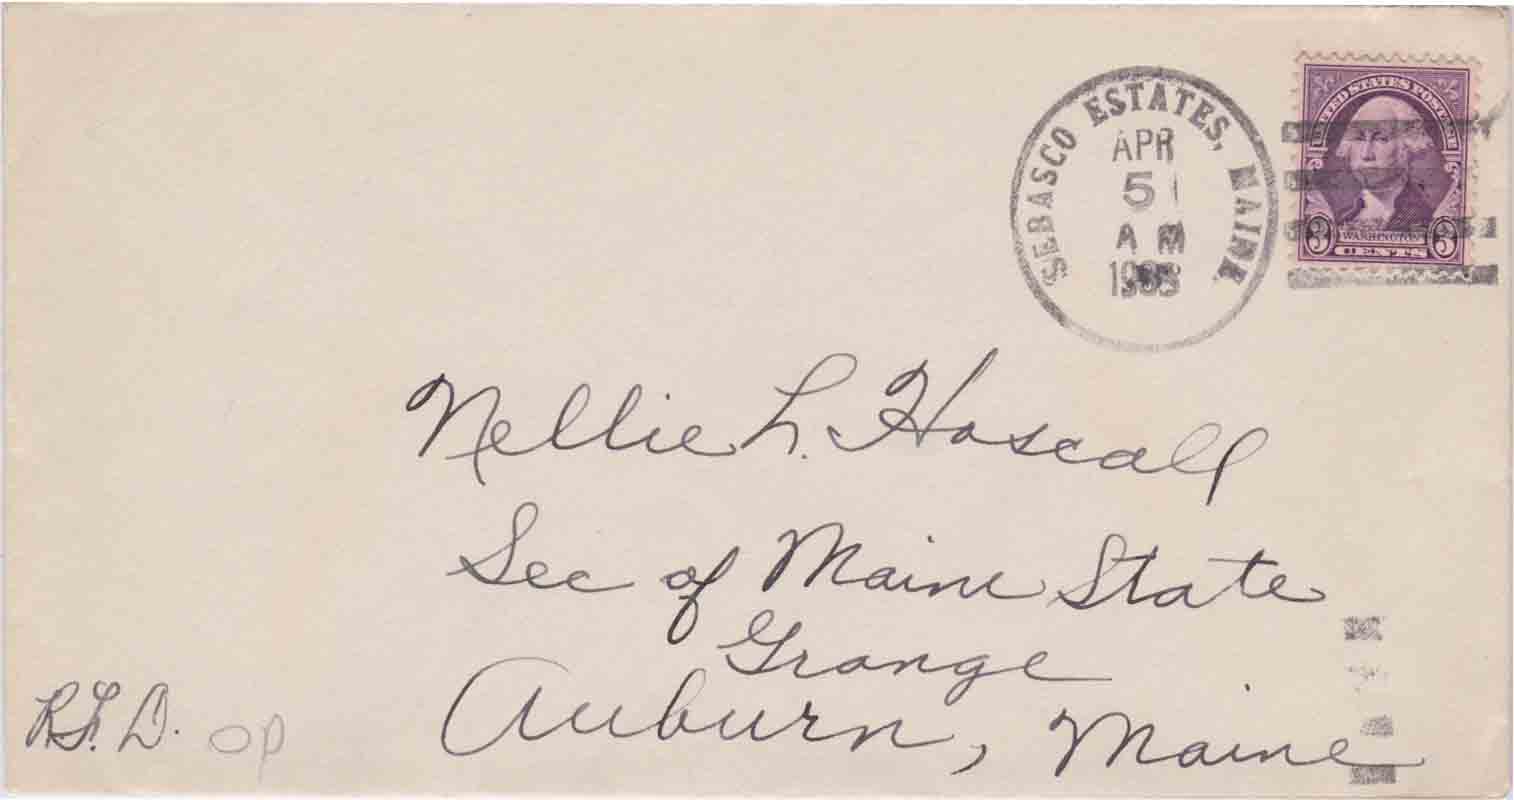 SEBASCO ESTATES, MAINE
APR
5
A M
UNITED STATES POSTAGE
WASHINGTON
3 CENTS 3
Nellie L. Hascall
Sec of Maine State
Grange
Auburn, Maine
R.F.D. op